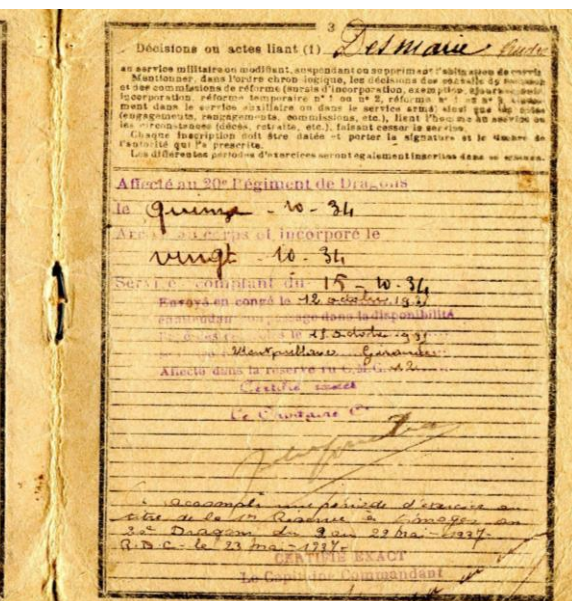 3
Décisions ou actes liant (1) Desmarie
au service militaire ou modifiant, suspendant ou supprimant
Mentionner, dans l'ordre chronologique, les décisions des conseils de
et des commissions de réforme (sursis d'incorporation, exemption, ajournement
incorporation, réforme temporaire n° 1 ou n° 2, réforme n° 1 ou n° 2,
ment dans le service auxiliaire ou dans le service armé) ainsi que les actes
(engagements, rengagements, commissions, etc.), liant l'homme au service ou
les circonstances (décès, retraite, etc.), faisant cesser le service.
Chaque inscription doit être datée et porter la signature et le timbre de
l'autorité qui l'a prescrite.
Les différentes périodes d'exercices seront également inscrites dans
Affecté au 20e Régiment de Dragons
le quinze - 10 - 34
corps et incorporé le
vingt - 10 - 34
Service comptant du 15 - 10 - 34
Envoyé en congé le 12 octobre
dans la disponibilité
le 15 octobre
Affecté dans la réserve
Certifié exact
Le
accompli une période d'exercice au
titre de la 1re Réserve à Limoges au
Dragons du 9 au 22 Mai - 1937.
R.D.C. le 23 mai - 1937.
CERTIFIÉ EXACT
Le Capitaine Commandant